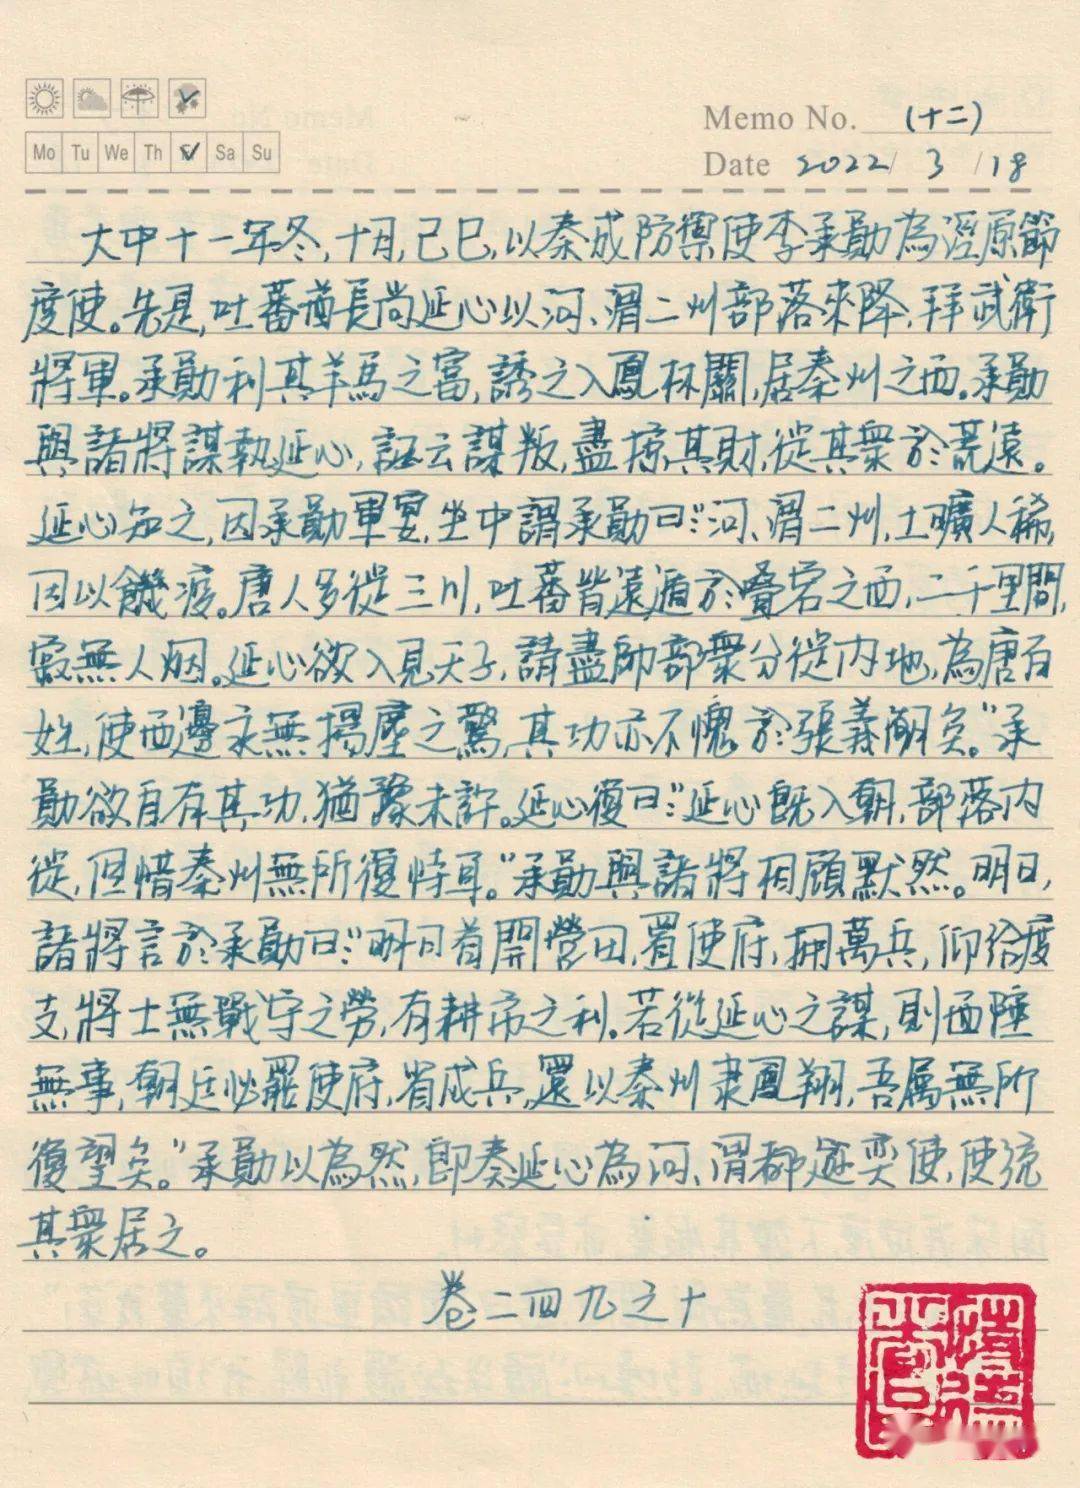 Memo No. (十二)
Mo Tu We Th Fr Sa Su
Date 2022/3/18
大中十一年冬,十月,己巳,以秦成防禦使李承勛為涇原節
度使。先是,吐蕃酋長尚延心以河、渭二州部落來降,拜武衛
將軍。承勛利其羊馬之富,誘之入鳳林關,居秦州之西。承勛
與諸將謀執延心,誣云謀叛,盡掠其財,徙其眾於荒遠。
延心知之,因承勛軍宴,坐中謂承勛曰:“河、渭二州,土曠人稀,
因以饑疫。唐人多徙三川,吐蕃皆遠遁於疊宕之西,二千里間,
寂無人烟。延心欲入見天子,請盡帥部眾分徙內地,為唐百
姓,使西邊永無揚塵之驚,其功亦不愧於張義潮矣。”承
勛欲自有其功,猶豫未許。延心復曰:“延心既入朝,部落內
徙,但惜秦州無所復恃耳。”承勛與諸將相顧默然。明日,
諸將言於承勛曰:“明公首開營田,置使府,擁萬兵,仰給度
支,將士無戰守之勞,有耕市之利。若從延心之謀,則西陲
無事,朝廷必罷使府,省戍兵,還以秦州隸鳳翔,吾屬無所
復望矣。”承勛以為然,即奏延心為河、渭都遊奕使,使統
其眾居之。
卷二四九之十